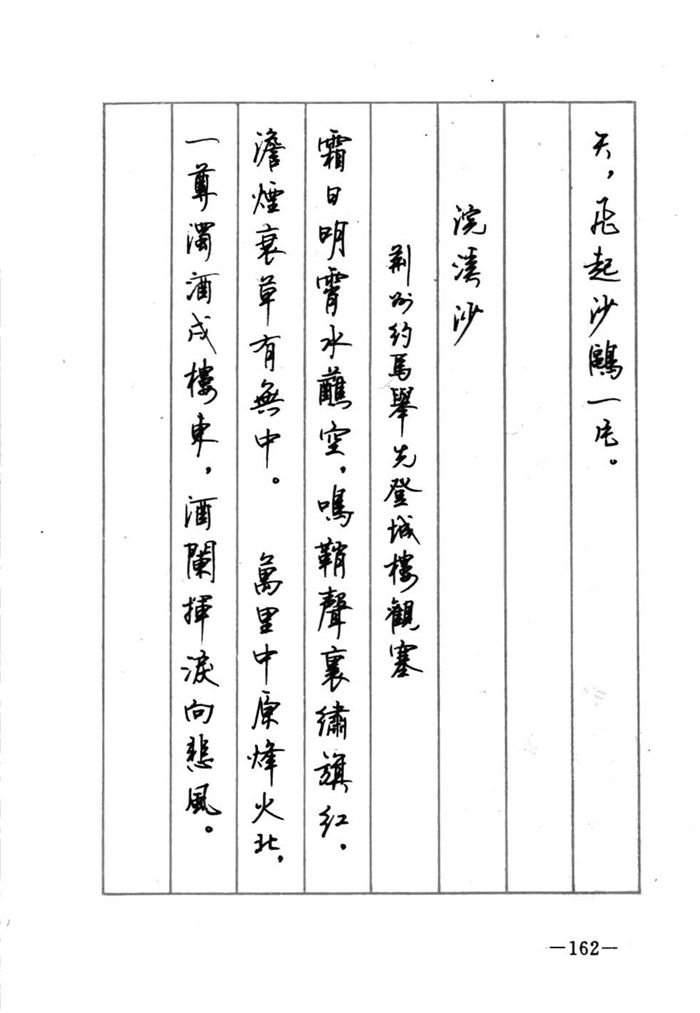 天，飛起沙鷗一片。
浣溪沙
荆州約馬舉先登城樓觀塞
霜日明霄水蘸空，鳴鞘聲裏繡旗红。
澹煙衰草有無中。　萬里中原烽火北，
一尊濁酒戍樓東，酒闌揮淚向悲風。
—162—